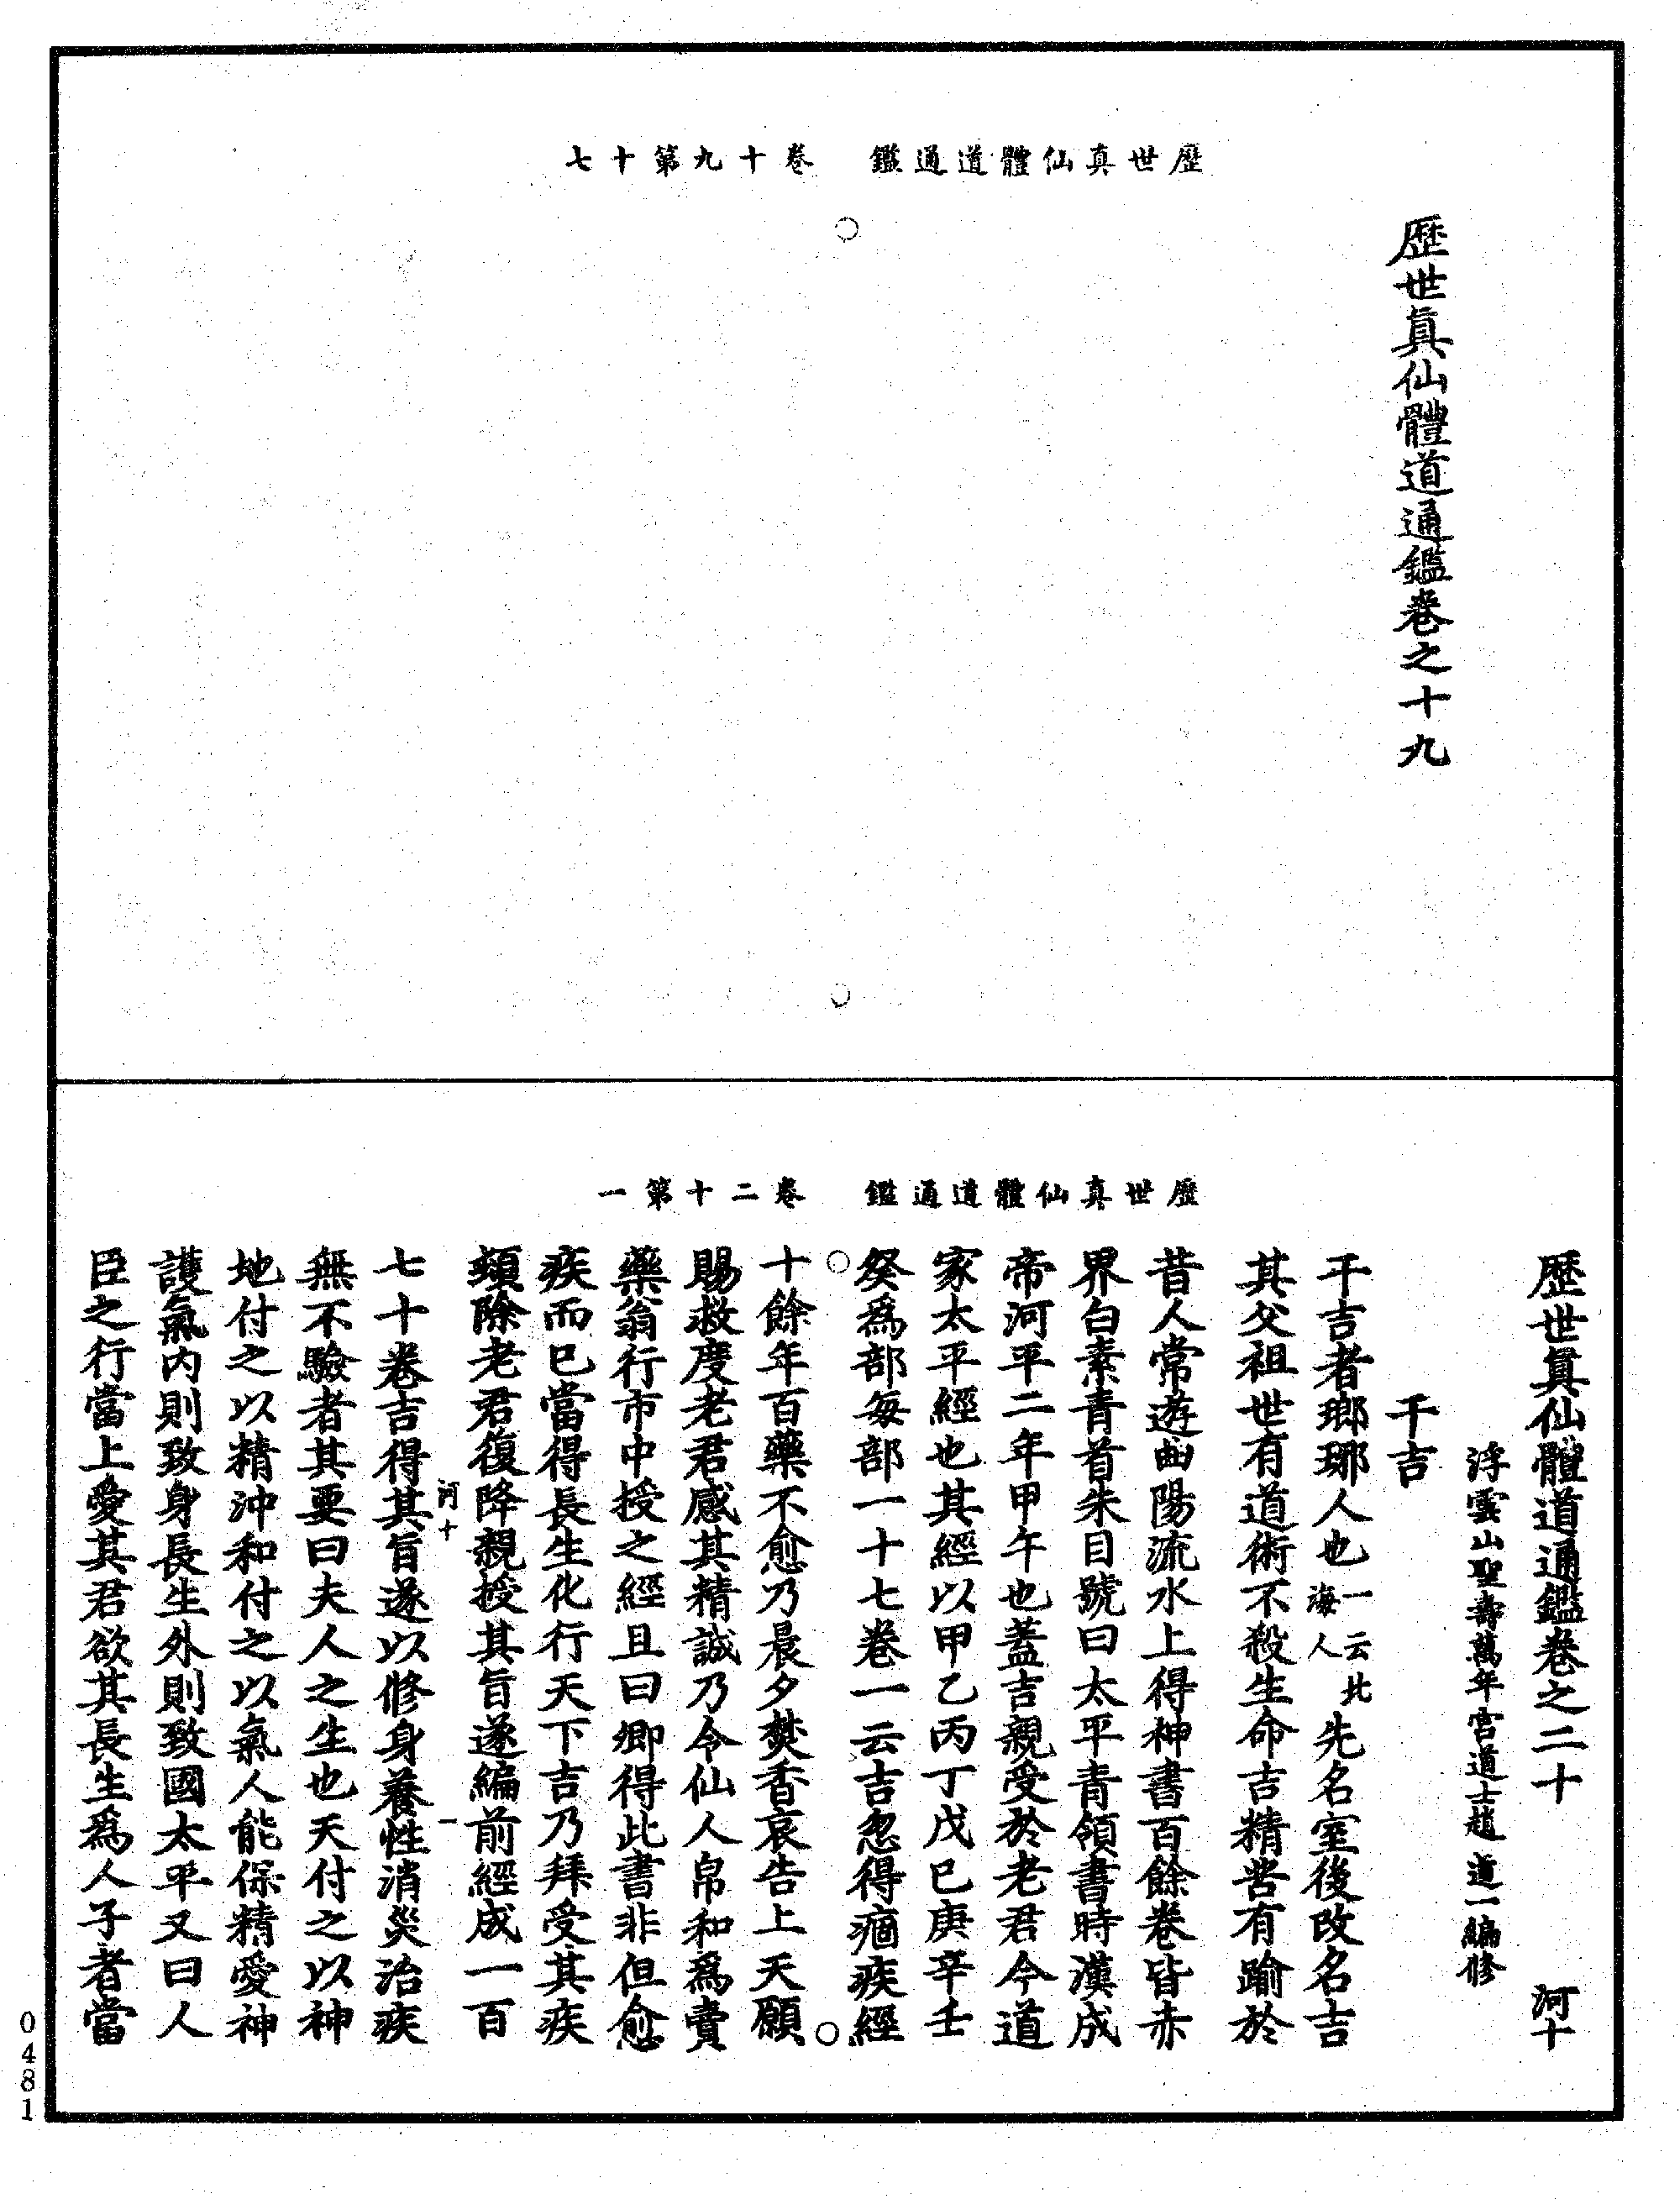 歷世真仙體道通鑑　卷十九第十七
歷世眞仙體道通鑑卷之十九
歷世真仙體道通鑑　卷二十第一
歷世眞仙體道通鑑卷之二十　河十
浮雲山聖壽萬年宮道士趙　道一編修
干吉
干吉者瑯琊人也一云北海人先名室後改名吉
其父祖世有道術不殺生命吉精苦有踰於
昔人常遊曲陽流水上得神書百餘卷皆赤
界白素青首朱目號曰太平青領書時漢成
帝河平二年甲午也蓋吉親受於老君今道
家太平經也其經以甲乙丙丁戊巳庚辛壬
癸爲部每部一十七卷一云吉忽得痼疾經
十餘年百藥不愈乃晨夕焚香哀告上天願
賜救度老君感其精誠乃令仙人帛和爲賣
藥翁行市中授之經且曰卿得此書非但愈
疾而巳當得長生化行天下吉乃拜受其疾
頓除老君復降親授其旨遂編前經成一百
河十　一
七十卷吉得其旨遂以修身養性消災治疾
無不驗者其要曰夫人之生也天付之以神
地付之以精沖和付之以氣人能保精愛神
護氣內則致身長生外則致國太平又曰人
臣之行當上愛其君欲其長生爲人子者當
0481